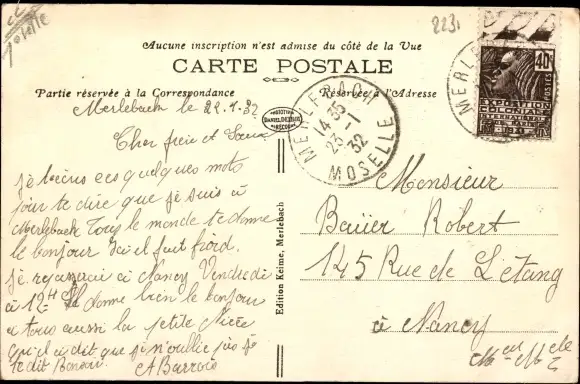 2231
Aucune inscription n'est admise du côté de la Vue
CARTE POSTALE
Partie réservée à la Correspondance
Réservée à l'Adresse
Merlebach le 22.1.32
Cher frere et Soeur
je técris ces quelques mots
pour te dire que je suis à
Merlebach Tous le monde te donne
le bonjour Ici il fait froid.
je repasserai à Nancy Vendredi
à 12H Il donne bien le bonjour
a tous aussi la petite Nièce
qu'il a dit que je n'oublie pas je
te dit Bonsoir.
A Barrois
Edition Keime, Merlebach
MERLEBACH
14 35
23 -1
32
MOSELLE
MERLE
40c
POSTES
EXPOSITION
COLONIALE
1931
Monsieur
Robert
145 Rue de L'étang
à Nancy